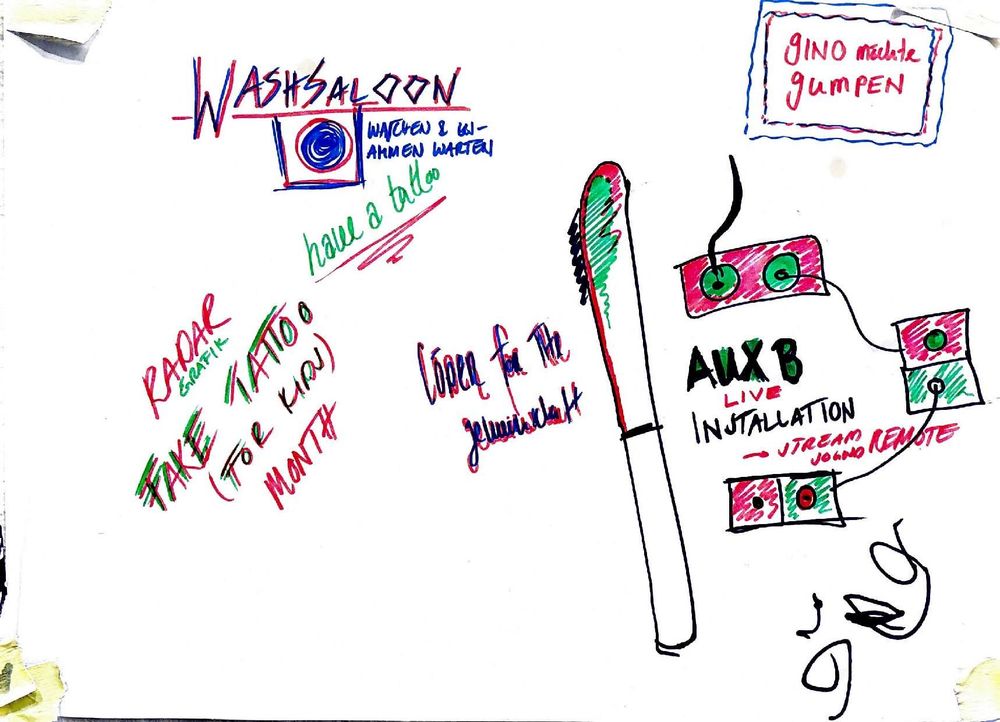 WASHSALOON
WATCHEN & UN-
AHMEN WARTEN
have a tattoo
gINO möchte
gUMPEN
RADAR
GRAFIK
FAKE TATTOO
(FOR KIDS)
MONTH
for the
gemeinschaft
AUX B
LIVE
INSTALLATION
→ STREAM
SOUND REMOTE